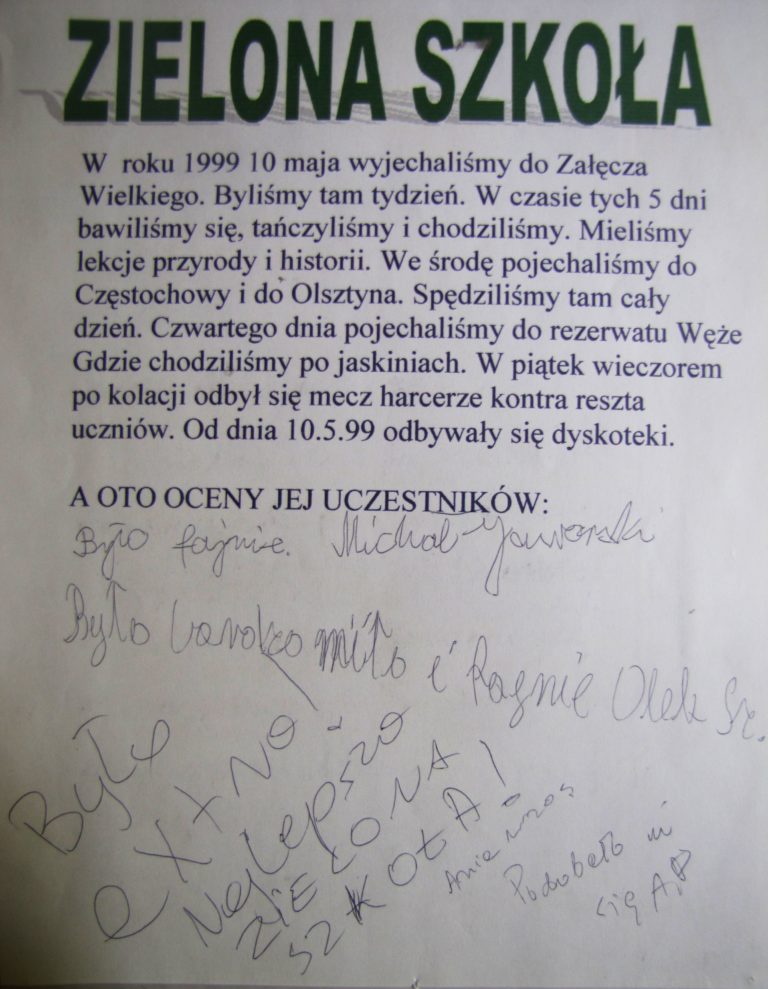 ZIELONA SZKOŁA
W roku 1999 10 maja wyjechaliśmy do Załęcza
Wielkiego. Byliśmy tam tydzień. W czasie tych 5 dni
bawiliśmy się, tańczyliśmy i chodziliśmy. Mieliśmy
lekcje przyrody i historii. We środę pojechaliśmy do
Częstochowy i do Olsztyna. Spędziliśmy tam cały
dzień. Czwartego dnia pojechaliśmy do rezerwatu Węże
Gdzie chodziliśmy po jaskiniach. W piątek wieczorem
po kolacji odbył się mecz harcerze kontra reszta
uczniów. Od dnia 10.5.99 odbywały się dyskoteki.
A OTO OCENY JEJ UCZESTNIKÓW:
Było fajnie. Michał Jaworski
Było bardzo miło i Olek Sz.
Było
Najlepsza
ZIELONA
SZKOŁA!
Podobało mi
się A.P